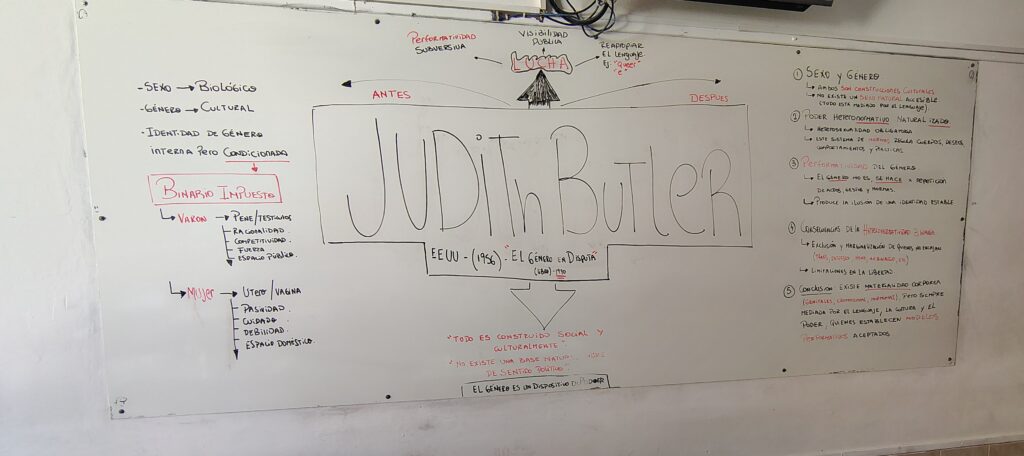 - SEXO → BIOLÓGICO
- GÉNERO → CULTURAL
- IDENTIDAD DE GÉNERO
INTERNA PERO CONDICIONADA
BINARIO IMPUESTO
VARON → PENE/TESTICULOS
RACIONALIDAD
COMPETITIVIDAD.
FUERZA
ESPACIO PÚBLICO.
MUJER → UTERO/VAGINA
PASIVIDAD.
CUIDADO.
DEBILIDAD.
ESPACIO DOMÉSTICO.
PERFORMATIVIDAD
SUBVERSIVA
VISIBILIDAD
PÚBLICA
REAPROPIAR
EL LENGUAJE
Ej: "Queer"
"e"
LUCHA
ANTES
DESPUES
JUDITH BUTLER
EEUU - (1956) - "EL GÉNERO EN DISPUTA"
(LIBRO) - 1990
"TODO ES CONSTRUIDO SOCIAL Y
CULTURALMENTE".
"NO EXISTE UNA BASE
DE SENTIDO POLÍTICO"
EL GÉNERO ES UN DISPOSITIVO DE PODER
① SEXO Y GÉNERO
↳ AMBOS SON CONSTRUCCIONES CULTURALES
↳ NO EXISTE UN SEXO NATURAL ACCESIBLE
(TODO ESTÁ MEDIADO POR EL LENGUAJE).
② PODER HETERONORMATIVO NATURALIZADO.
↳ HETEROSEXUALIDAD OBLIGATORIA
↳ ESTE SISTEMA DE NORMAS REGULA CUERPOS, DESEOS,
COMPORTAMIENTOS Y POLÍTICAS
③ PERFORMATIVIDAD DEL GÉNERO
↳ EL GÉNERO NO ES, SE HACE × REPETICIÓN
DE ACTOS, GESTOS Y NORMAS.
↳ PRODUCE LA ILUSIÓN DE UNA IDENTIDAD ESTABLE
④ CONSECUENCIAS DE LA
↳ EXCLUSIÓN Y MARGINALIZACIÓN DE QUIENES NO ENCAJAN
↳ LIMITACIONES EN LA LIBERTAD
⑤ CONCLUSIÓN EXISTE MATERIALIDAD CORPOREA
(GENITALES, HORMONAS) PERO SIEMPRE
MEDIADA POR EL LENGUAJE, LA CULTURA Y EL
PODER, QUIENES ESTABLECEN MODELOS
PERFORMATIVOS ACEPTADOS.